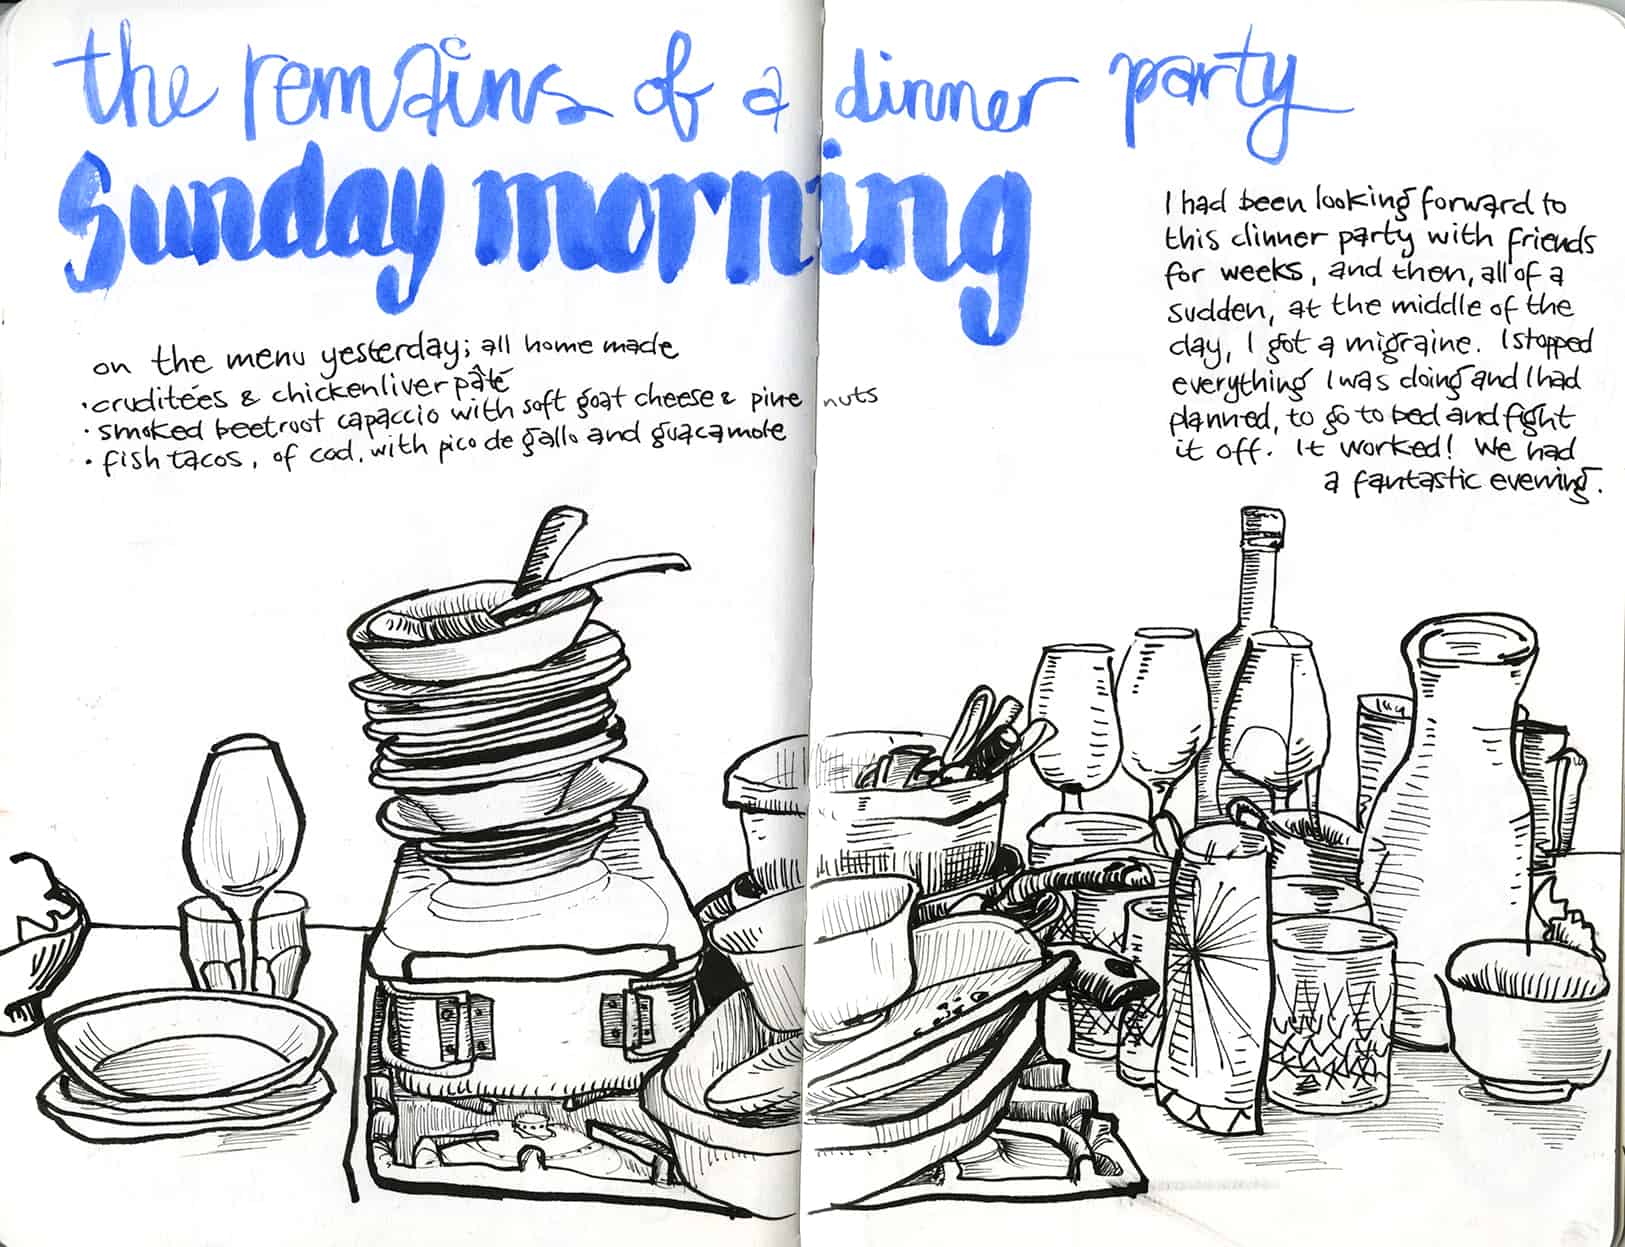 the remains of a dinner party
Sunday morning
on the menu yesterday; all home made
• crudités & chickenliver pâté
• smoked beetroot capaccio with soft goat cheese & pine nuts
• fish tacos, of cod, with pico de gallo and guacamole
I had been looking forward to
this dinner party with friends
for weeks, and then, all of a
sudden, at the middle of the
day, I got a migraine. I stopped
everything I was doing and I had
planned, to go to bed and fight
it off. It worked! We had
a fantastic evening.